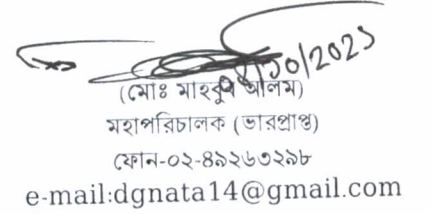 /১০/২০২১
(মোঃ মাহবুব আলম)
মহাপরিচালক (ভারপ্রাপ্ত)
ফোন-০২-৪৯২৬৩২৯৮
e-mail:dgnata14@gmail.com